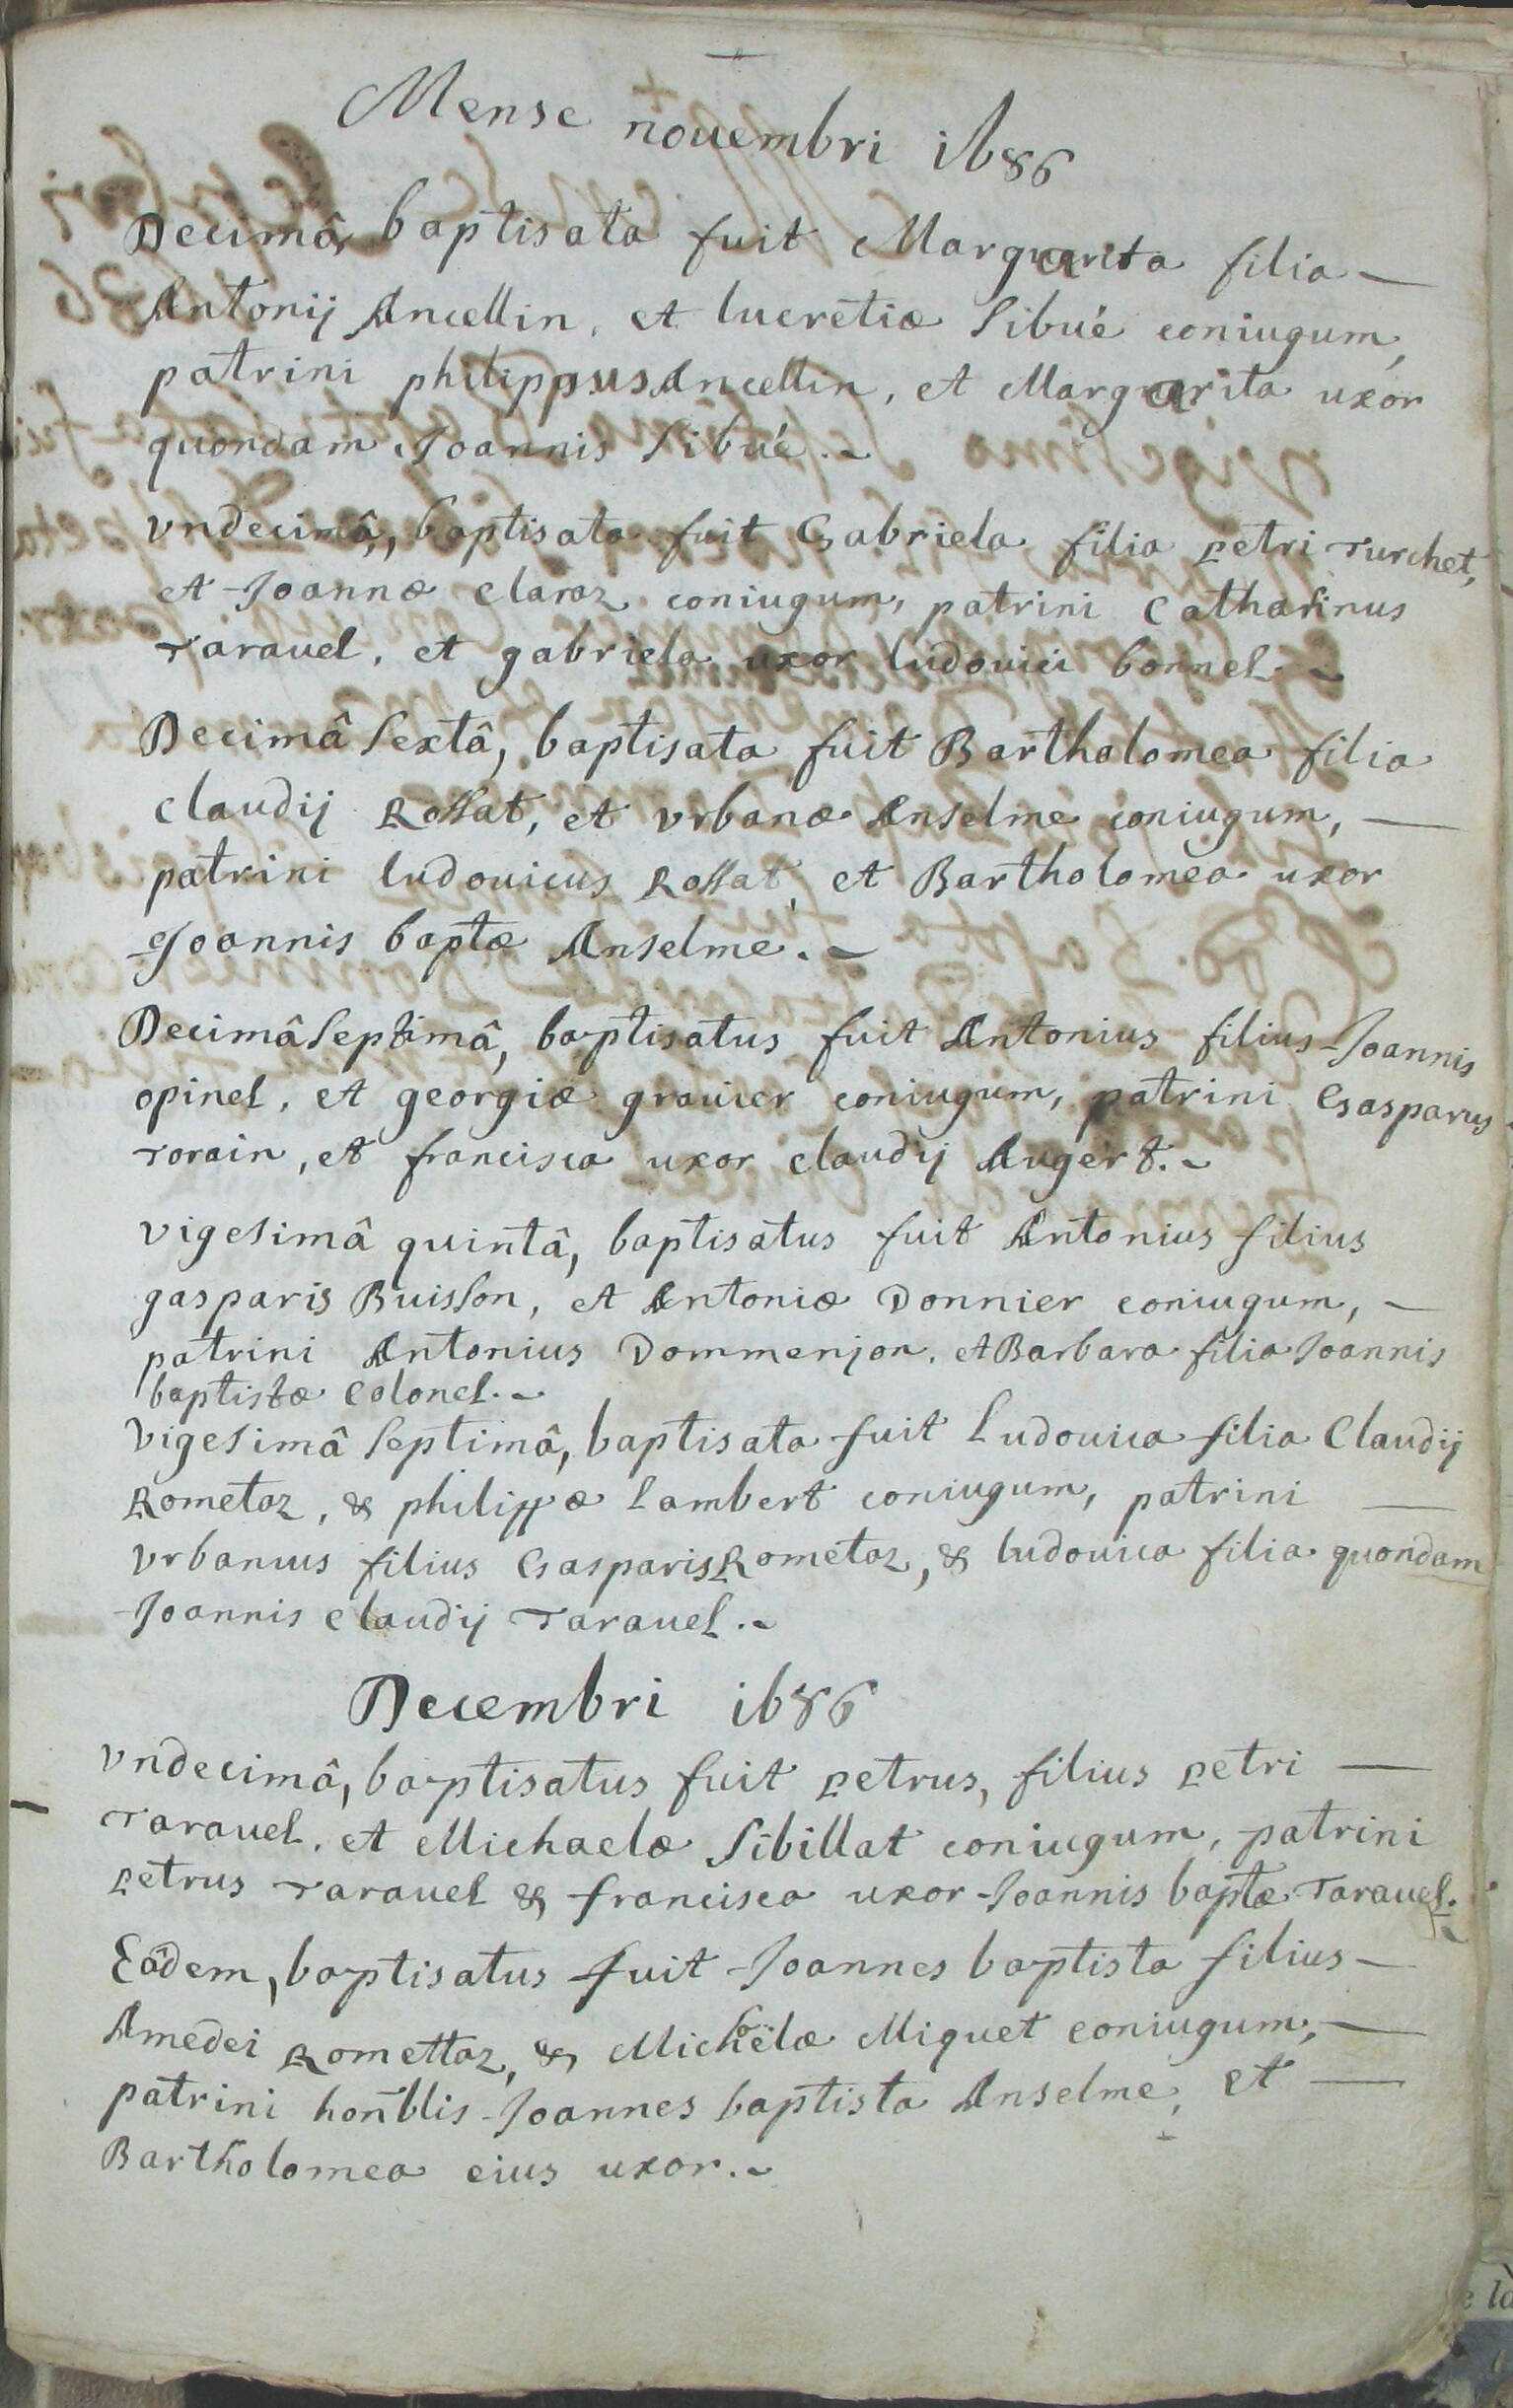 Mense nouembri 1686
Decimâ, baptisata fuit Marguarita filia —
Antonij Ancellin, et lucretiæ Sibué coniugum,
patrini philippus Ancellin, et Marguarita uxor
quondam Joannis Sibué.
vndecimâ, baptisata fuit Gabriela filia petri Turchet,
et Joannæ Claraz coniugum, patrini Catharinus
Tarauel, et gabriela uxor ludouici bonnel.
Decimâ Sextâ, baptisata fuit Bartholomea filia
Claudij Rossat, et vrbanæ Anselme coniugum, —
patrini ludouicus Rossat, et Bartholomea uxor
Joannis baptæ Anselme.
Decimâ Septimâ, baptisatus fuit Antonius filius Joannis
opinel, et georgiæ grauier coniugum, patrini Gasparus
Torain, et francisca uxor claudij Augert.
vigesimâ quintâ, baptisatus fuit Antonius filius
gasparis Buisson, et Antoniæ Donnier coniugum, —
patrini Antonius Dommenjon, et Barbara filia Joannis
baptistæ Colonel.
vigesimâ Septimâ, baptisata fuit Ludouica filia Claudij
Rometaz, & philippæ lambert coniugum, patrini —
vrbanus filius Gasparis Rometaz, & ludouica filia quondam
Joannis claudij Tarauel.
Decembri 1686
vndecimâ, baptisatus fuit petrus, filius petri —
Tarauel, et Michaelæ Sibillat coniugum, patrini
petrus Tarauel & francisca uxor Joannis baptæ Tarauel.
Eâdem, baptisatus fuit Joannes baptista filius —
Amedei Romettaz, & Michaelæ Miquet coniugum, —
patrini hon̄blis Joannes baptista Anselme, et —
Bartholomea eius uxor.